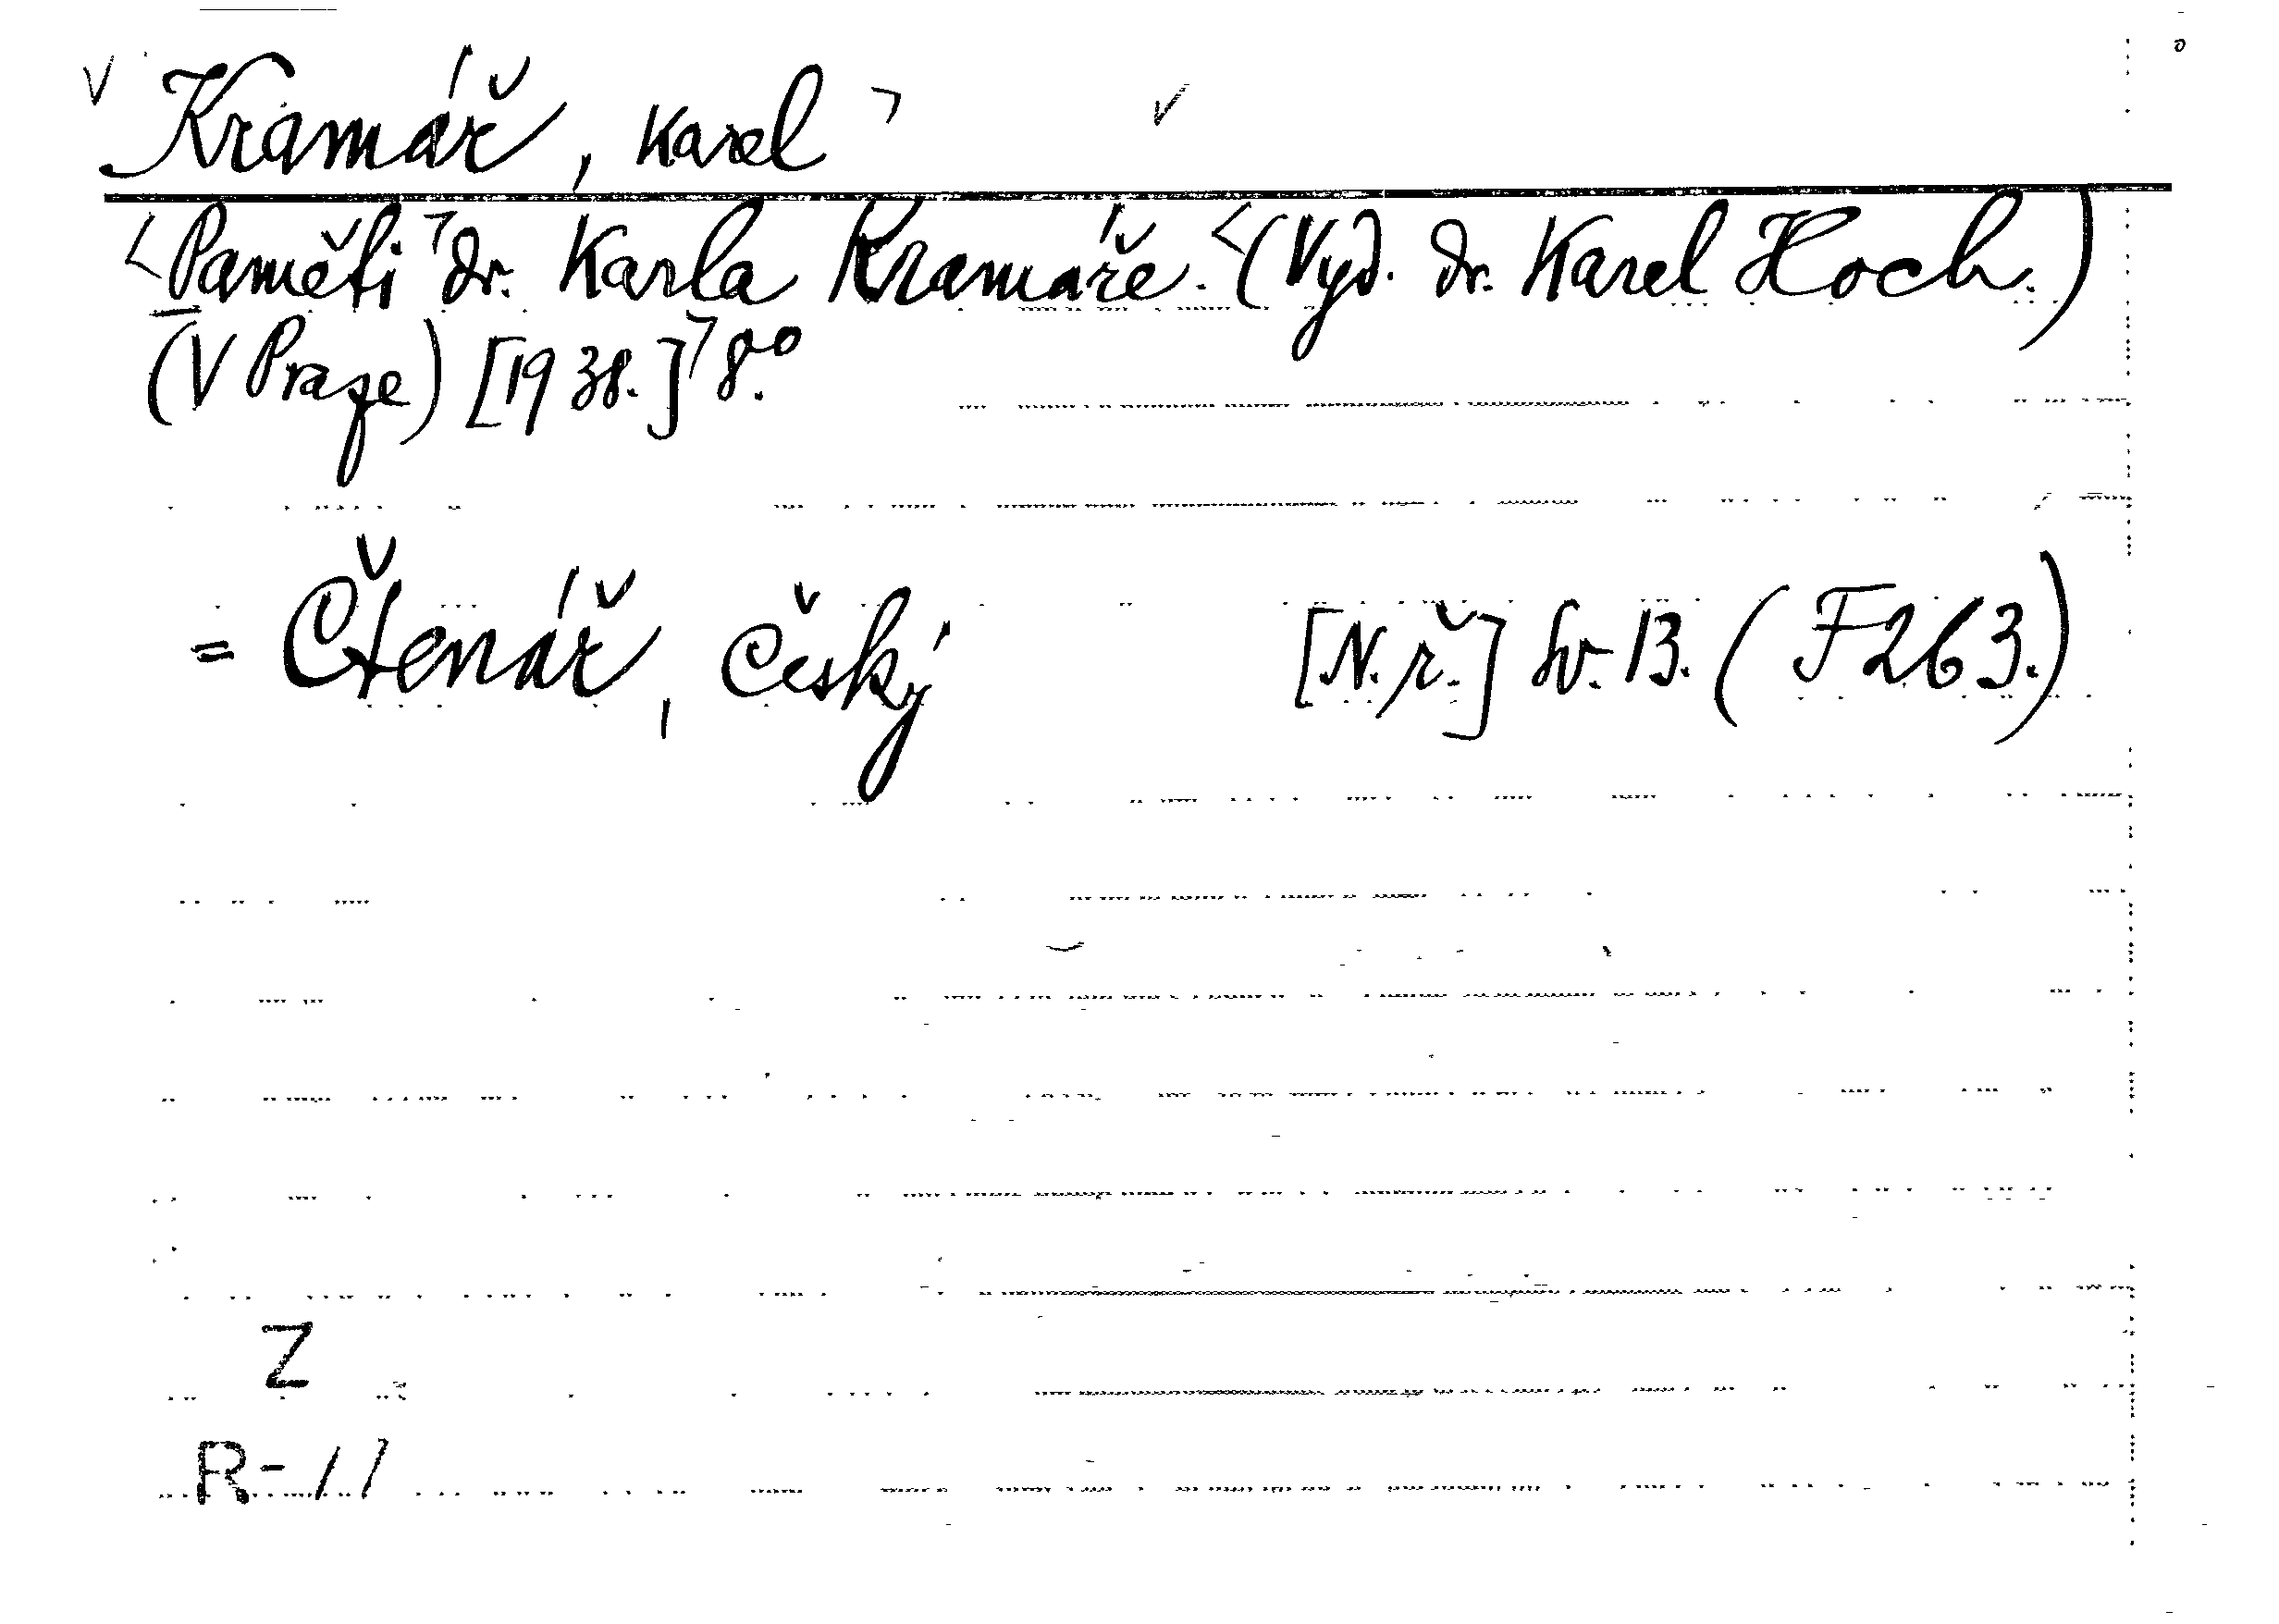 Kramář, Karel
Paměti dr. Karla Kramáře. (Vyd. dr. Karel Hoch.)
(V Praze) [1938.] 8.º
= Čtenář, Český [N. ř.] Sv. 13. (F 263.)
Z
R-11